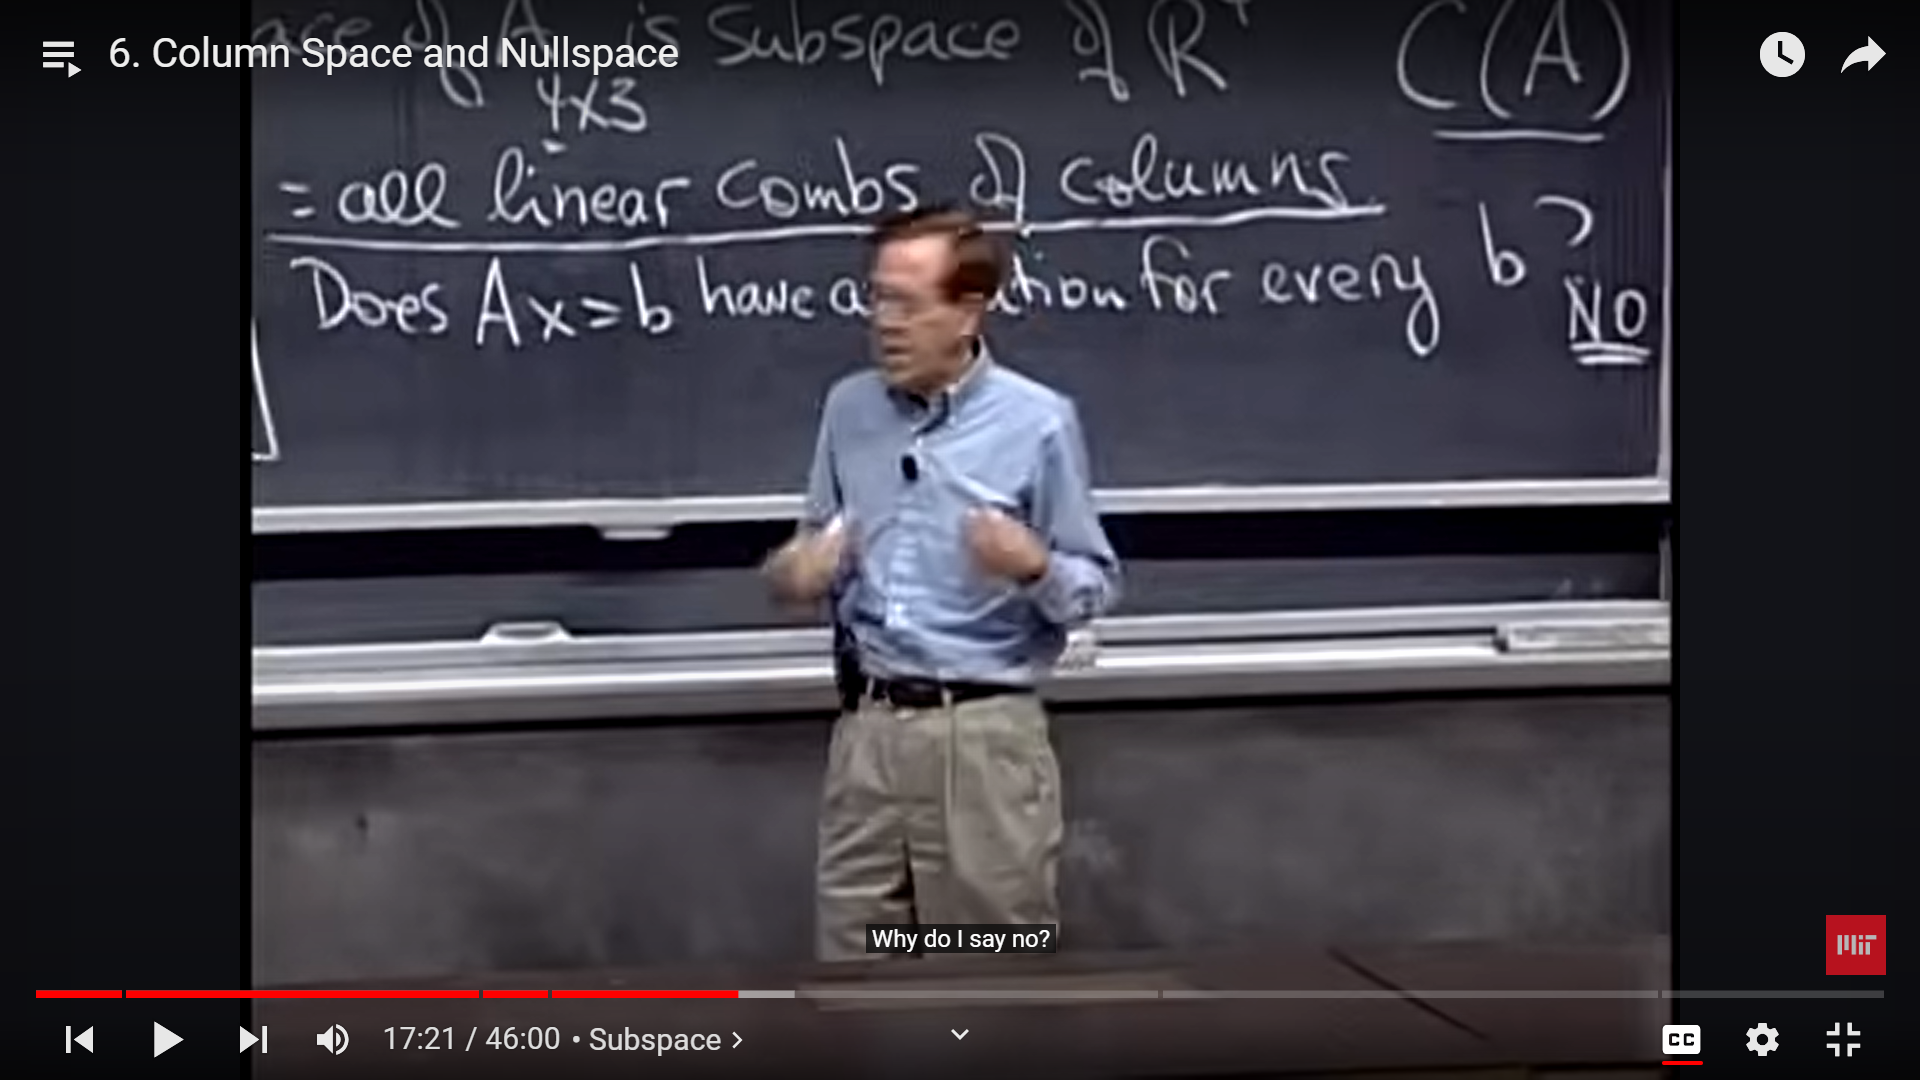 6. Column Space and Nullspace
of A is Subspace of R⁴ C(A)
4x3
= all linear combs of columns.
Does Ax=b have a for every b ?
NO
Why do I say no?
MIT
17:21 / 46:00 • Subspace >
CC